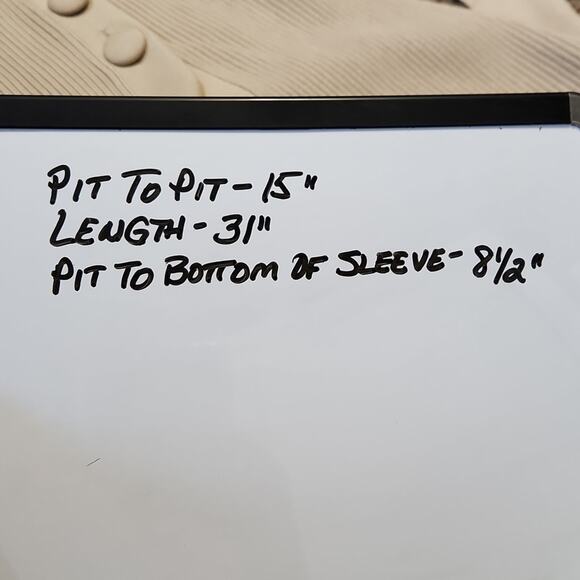 PIT TO PIT - 15"
LENGTH - 31"
PIT TO BOTTOM OF SLEEVE - 8 1/2"